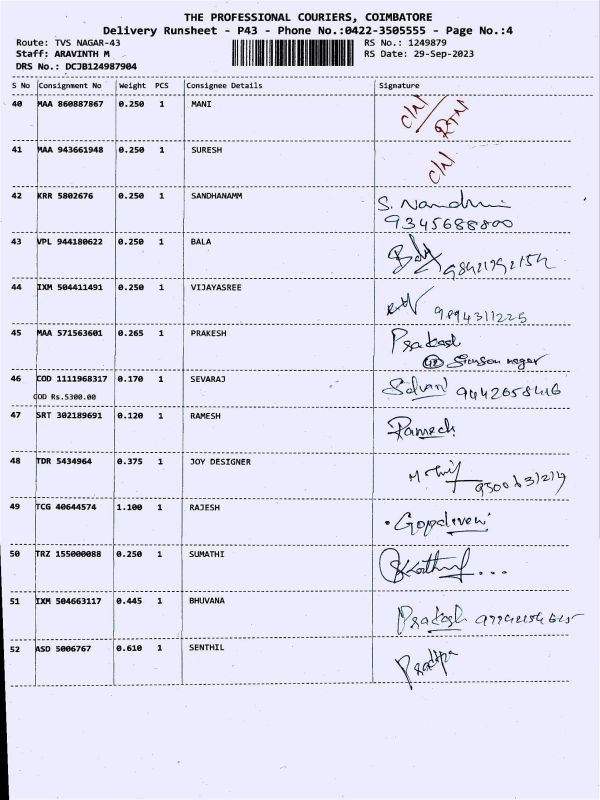 THE PROFESSIONAL COURIERS, COIMBATORE
Delivery Runsheet - P43 - Phone No.:0422-3505555 - Page No.:4
Route: TVS NAGAR-43 RS No.: 1249879
Staff: ARAVINTH M RS Date: 29-Sep-2023
DRS No.: DCJB124987904
S No Consignment No Weight PCS Consignee Details Signature
40 MAA 860887867 0.250 1 MANI C/N/ RTN
41 MAA 943661948 0.250 1 SURESH C/N
42 KRR 5802676 0.250 1 SANDHANAMM S.
9345688800
43 VPL 944180622 0.250 1 BALA
44 IXM 504411491 0.250 1 VIJAYASREE 9894311225
45 MAA 571563601 0.265 1 PRAKESH Prakash
46 COD 1111968317 0.170 1 SEVARAJ
COD Rs.5300.00
47 SRT 302189691 0.120 1 RAMESH Ramesh
48 TDR 5434964 0.375 1 JOY DESIGNER
49 TCG 40644574 1.100 1 RAJESH
50 TRZ 155000088 0.250 1 SUMATHI
51 IXM 504663117 0.445 1 BHUVANA Prakash
52 ASD 5006767 0.610 1 SENTHIL